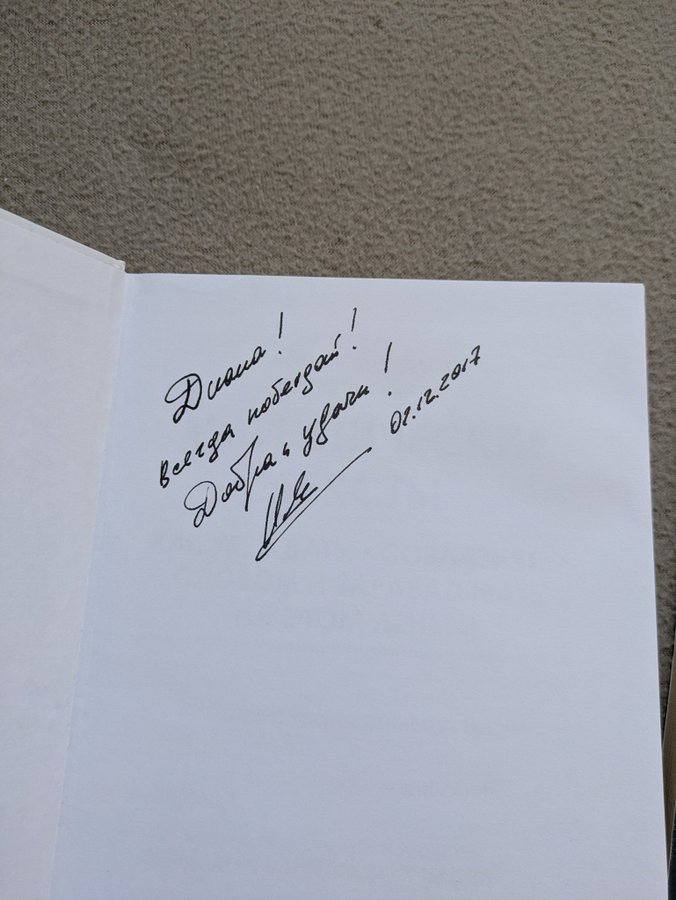 Диана!
всегда побеждай!
Добра и удачи!
02.12.2017